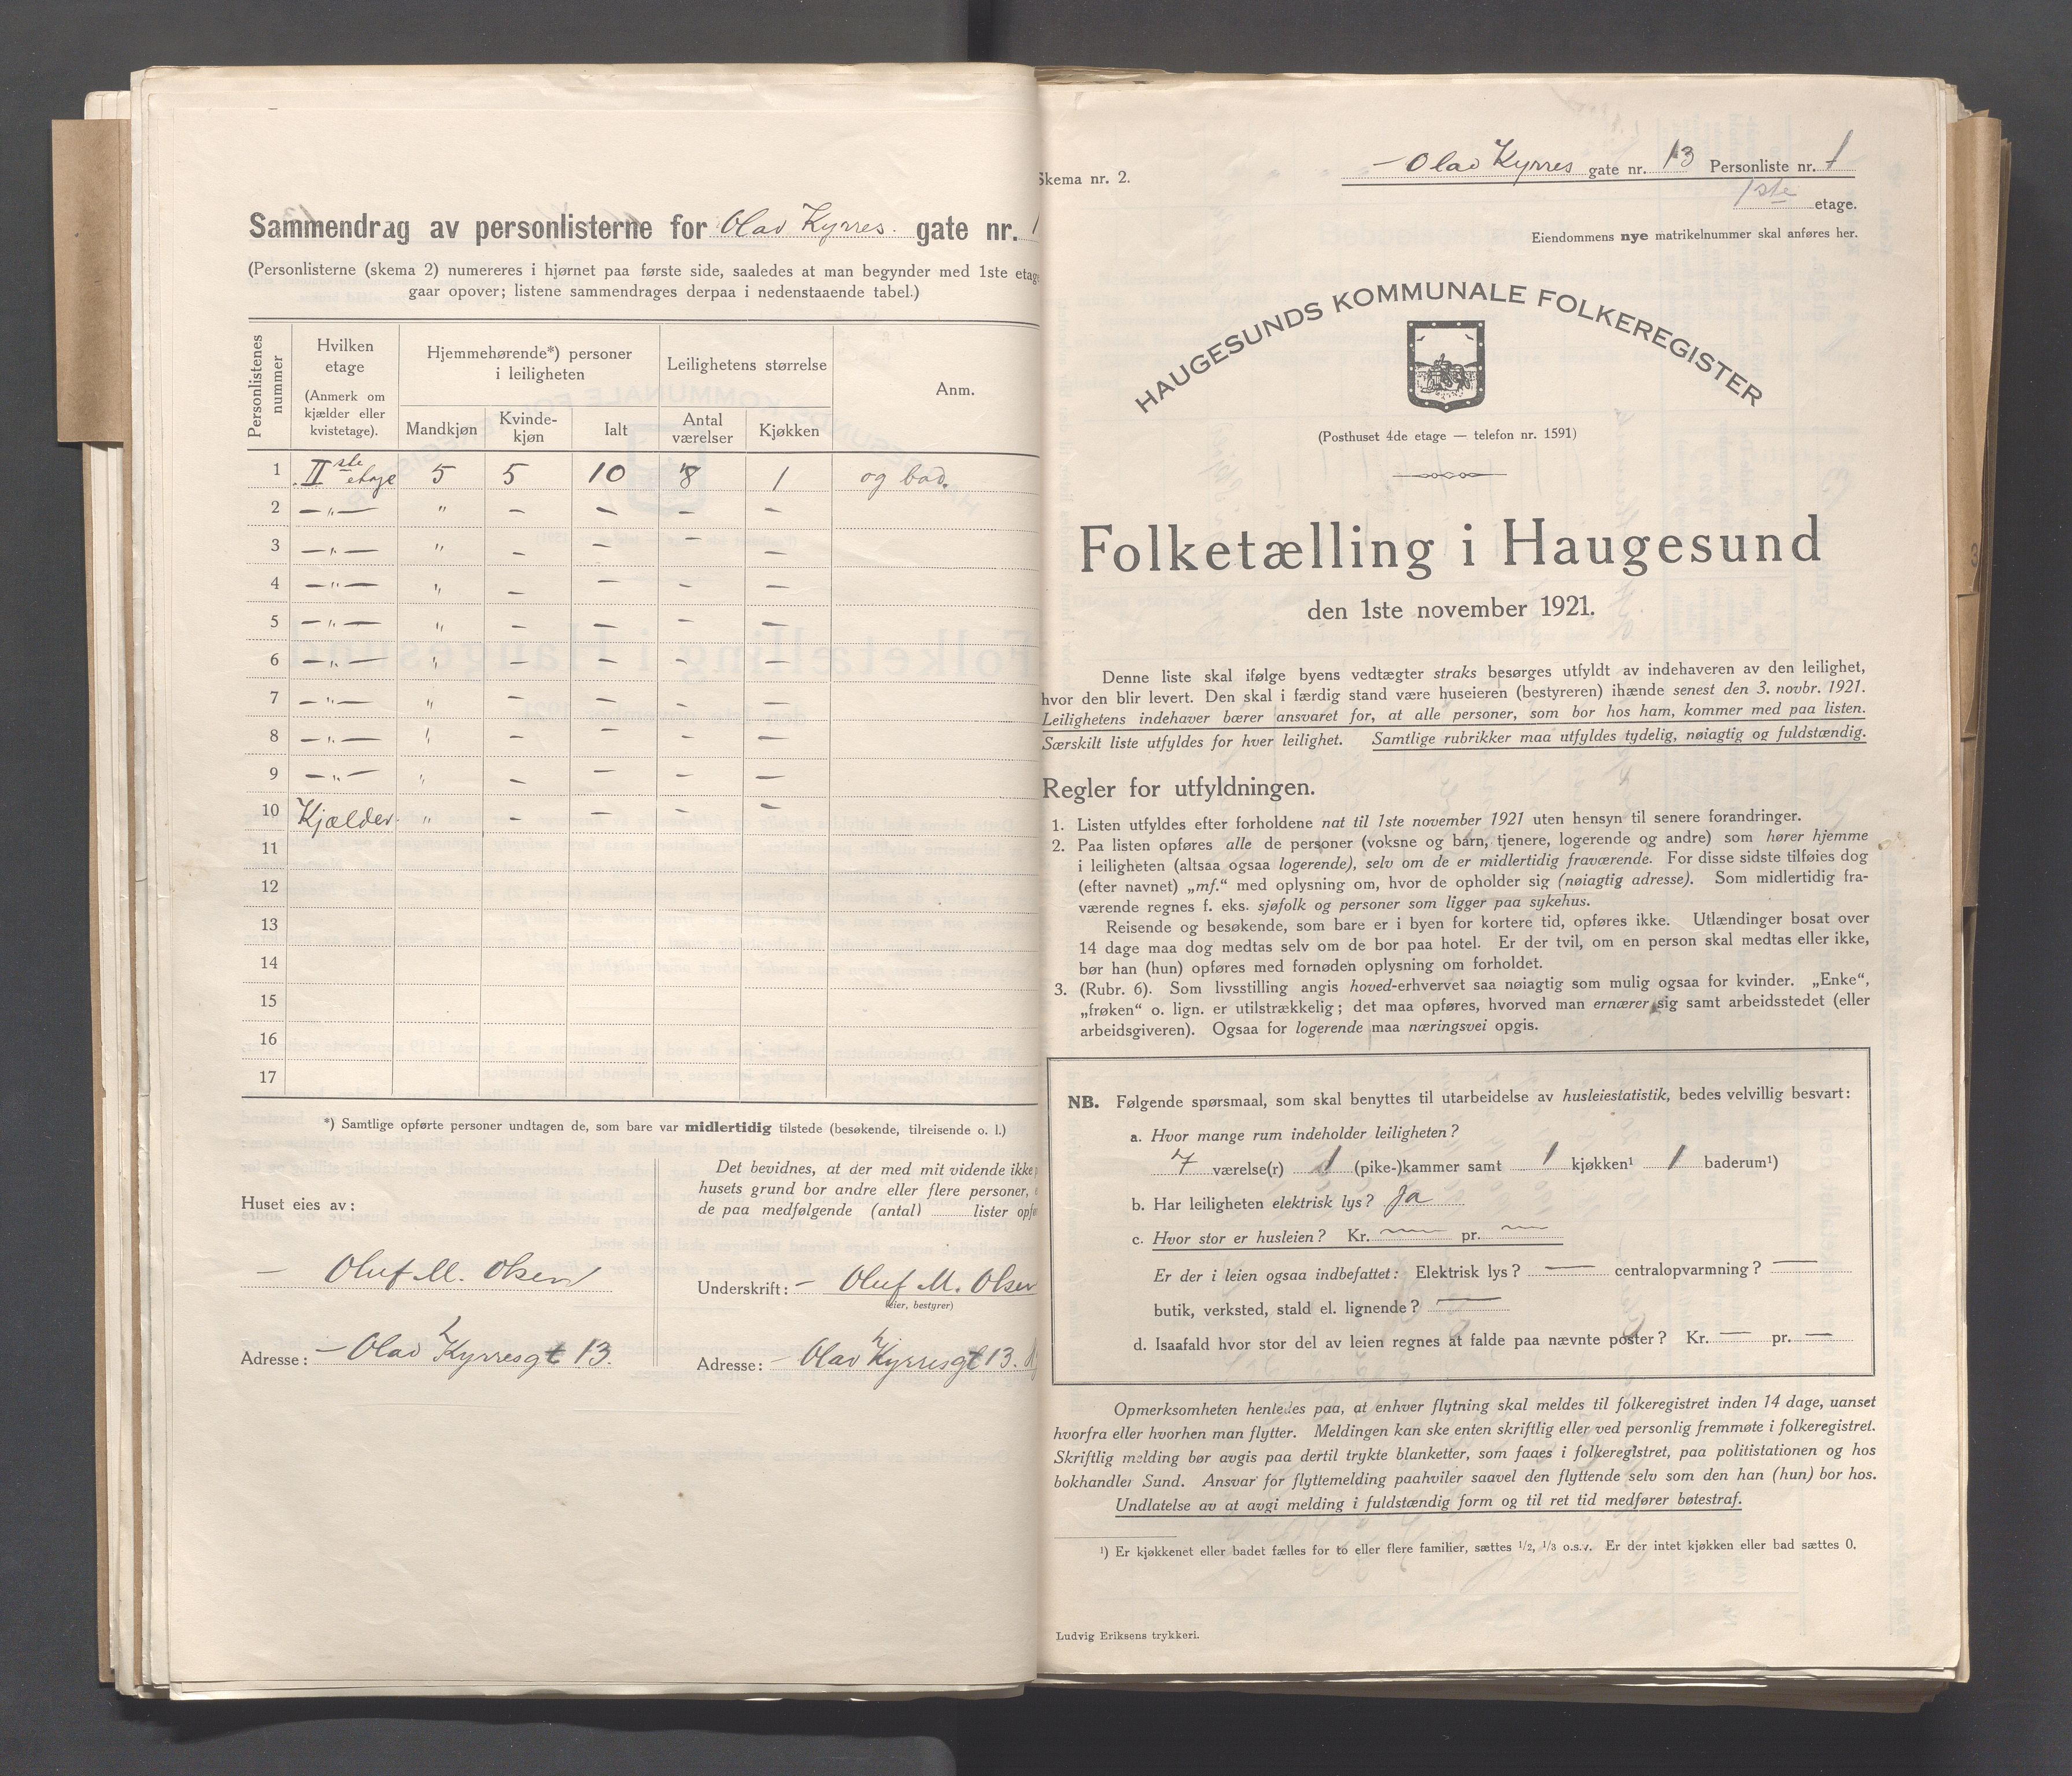 Sammendrag av personlisterne for Olav Kyrres gate nr. 1
(Personlisterne (skema 2) numereres i hjørnet paa første side, saaledes at man begynder med 1ste etag
gaar opover; listene sammendrages derpaa i nedenstaaende tabel.)
Personlistenes nummer
Hvilken etage (Anmerk om kjælder eller kvistetage).
Hjemmehørende*) personer i leiligheten
Leilighetens størrelse
Anm.
Mandkjøn
Kvindekjøn
Ialt
Antal værelser
Kjøkken
1 II ste etage 5 5 10 8 1 og bad.
2 — „ — „ — — — —
3 — „ — „ — — — —
4 — „ — „ — — — —
5 — „ — „ — — — —
6 — „ — „ — — — —
7 — „ — „ — — — —
8 — „ — „ — — — —
9 — „ — „ — — — —
10 Kjælder „ — — — —
11
12
13
14
15
16
17
*) Samtlige opførte personer undtagen de, som bare var midlertidig tilstede (besøkende, tilreisende o. l.)
Huset eies av:
— Oluf M. Olsen
Adresse: — Olav Kyrresgt 13.
Det bevidnes, at der med mit vidende ikke
husets grund bor andre eller flere personer,
de paa medfølgende (antal) lister opfø
Underskrift: — Oluf M. Olsen
(eier, bestyrer)
Adresse: — Olav Kyrresgt 13.
Skema nr. 2.
— Olav Kyrres gate nr. 13 Personliste nr. 1
1ste etage.
Eiendommens nye matrikelnummer skal anføres her.
HAUGESUNDS KOMMUNALE FOLKEREGISTER
(Posthuset 4de etage — telefon nr. 1591)
Folketælling i Haugesund
den 1ste november 1921.
Denne liste skal ifølge byens vedtægter straks besørges utfyldt av indehaveren av den leilighet,
hvor den blir levert. Den skal i færdig stand være huseieren (bestyreren) ihænde senest den 3. novbr. 1921.
Leilighetens indehaver bærer ansvaret for, at alle personer, som bor hos ham, kommer med paa listen.
Særskilt liste utfyldes for hver leilighet. Samtlige rubrikker maa utfyldes tydelig, nøiagtig og fuldstændig.
Regler for utfyldningen.
1. Listen utfyldes efter forholdene nat til 1ste november 1921 uten hensyn til senere forandringer.
2. Paa listen opføres alle de personer (voksne og barn, tjenere, logerende og andre) som hører hjemme
i leiligheten (altsaa ogsaa logerende), selv om de er midlertidig fraværende. For disse sidste tilføies dog
(efter navnet) „mf.“ med oplysning om, hvor de opholder sig (nøiagtig adresse). Som midlertidig fra-
værende regnes f. eks. sjøfolk og personer som ligger paa sykehus.
Reisende og besøkende, som bare er i byen for kortere tid, opføres ikke. Utlændinger bosat over
14 dage maa dog medtas selv om de bor paa hotel. Er der tvil, om en person skal medtas eller ikke,
bør han (hun) opføres med fornøden oplysning om forholdet.
3. (Rubr. 6). Som livsstilling angis hoved-erhvervet saa nøiagtig som mulig ogsaa for kvinder. „Enke“,
„frøken“ o. lign. er utilstrækkelig; det maa opføres, hvorved man ernærer sig samt arbeidsstedet (eller
arbeidsgiveren). Ogsaa for logerende maa næringsvei opgis.
NB. Følgende spørsmaal, som skal benyttes til utarbeidelse av husleiestatistik, bedes velvillig besvart:
a. Hvor mange rum indeholder leiligheten?
7 værelse(r) 1 (pike-)kammer samt 1 kjøkken¹ 1 baderum¹)
b. Har leiligheten elektrisk lys? Ja
c. Hvor stor er husleien? Kr. — pr. —
Er der i leien ogsaa indbefattet: Elektrisk lys? — centralopvarmning? —
butik, verksted, stald el. lignende? —
d. Isaafald hvor stor del av leien regnes at falde paa nævnte poster? Kr. — pr. —
Opmerksomheten henledes paa, at enhver flytning skal meldes til folkeregistret inden 14 dage, uanset
hvorfra eller hvorhen man flytter. Meldingen kan ske enten skriftlig eller ved personlig fremmøte i folkeregistret.
Skriftlig melding bør avgis paa dertil trykte blanketter, som faaes i folkeregistret, paa politistationen og hos
bokhandler Sund. Ansvar for flyttemelding paahviler saavel den flyttende selv som den han (hun) bor hos.
Undlatelse av at avgi melding i fuldstændig form og til ret tid medfører bøtestraf.
¹) Er kjøkkenet eller badet fælles for to eller flere familier, sættes 1/2, 1/3 o.s.v. Er der intet kjøkken eller bad sættes 0.
Ludvig Eriksens trykkeri.